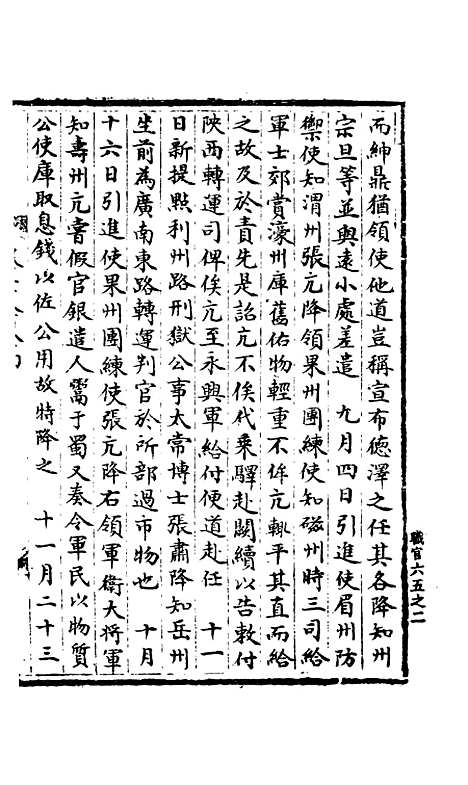 職官六五之二
而紳鼎猶領使他道豈稱宣布德澤之任其各降知州
宗旦等並與遠小處差遣　九月四日引進使眉州防
禦使知渭州張亢降領果州團練使知磁州時三司給
軍士郊賞濠州庫舊估物輕重不侔亢輒平其直而給
之故及於責先是詔亢不俟代乘驛赴闕續以告敕付
陝西轉運司俾俟亢至永興軍給付便道赴任　十一
日新提點利州路刑獄公事太常博士張肅降知岳州
坐前為廣南東路轉運判官於所部過市物也　十月
十六日引進使果州團練使張亢降右領軍衛大將軍
知壽州亢嘗假官銀遣人鬻于蜀又奏令軍民以物質
公使庫取息錢以佐公用故特降之　十一月二十三